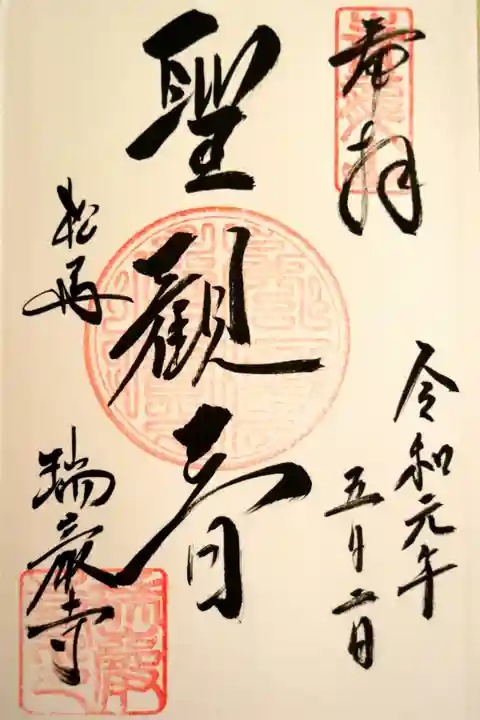 奉拝
令和元年
五月二日
聖観音
松島
瑞巌寺